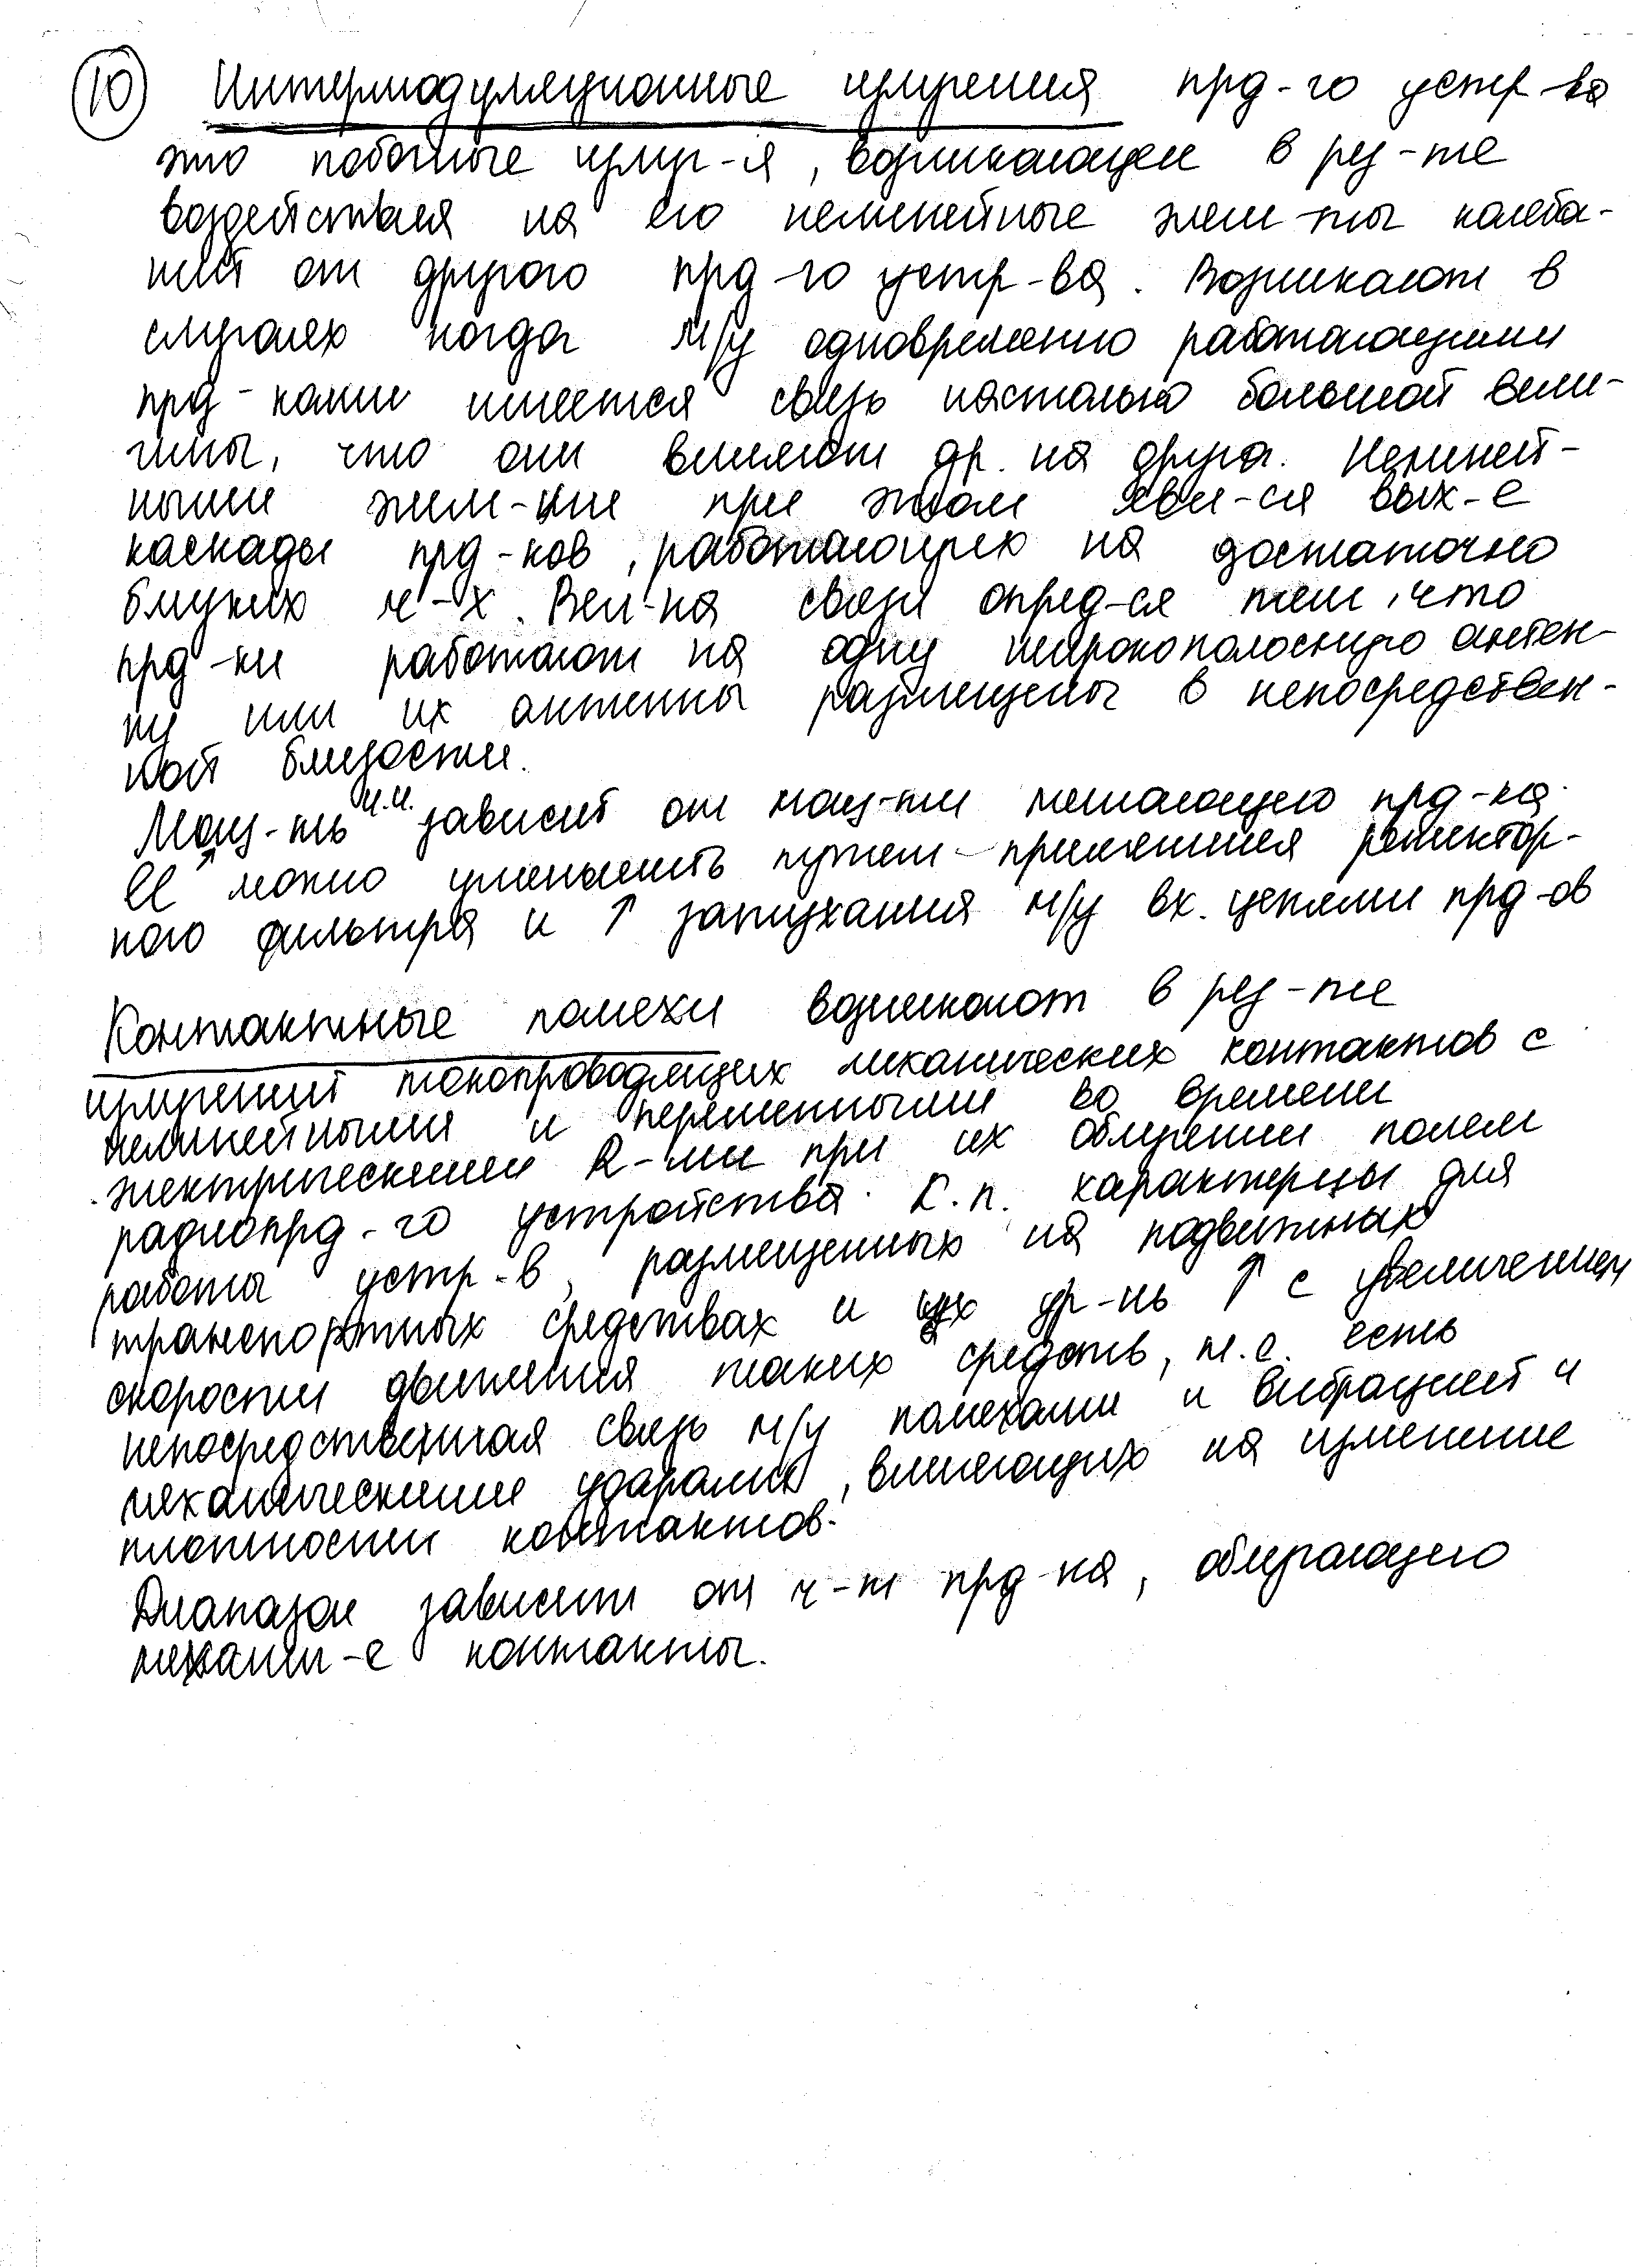 10 Интермодуляционные излучения прд-го устр-ва
это побочные излуч-я, возникающие в рез-те
воздействия на его нелинейные элем-ты колеба-
ний от другого прд-го устр-ва. Возникают в
случаях когда м/у одновременно работающими
прд-ками имеется связь настолько большой вели-
чины, что они влияют др. на друга. Нелиней-
ными элем-ми при этом явл-ся вых-е
каскады прд-ков, работающих на достаточно
близких ч-х. Вел-на связи опред-ся тем, что
прд-ки работают на одну широкополосную антен-
ну или их антенны размещены в непосредствен-
ной близости.
Мощ-ть И.И. зависит от мощ-ти мешающего прд-ка.
Её можно уменьшить путем применения режектор-
ного фильтра и ↑ затухания м/у вх. цепями прд-ов
Контактные помехи возникают в рез-те
излучений токопроводящих механических контактов с
нелинейными и переменными во времени
электрическими R-ми при их облучении полем
радиопрд-го устройства. К.п. характерны для
работы устр-в, размещенных на подвижных
транспортных средствах и их ур-нь ↑ с увеличением
скорости движения таких средств, т.е. есть
непосредственная связь м/у помехами и вибрацией и
механическими ударами, влияющих на изменение
плотности контактов.
Диапазон зависит от ч-т прд-ка, облучающего
механич-е контакты.